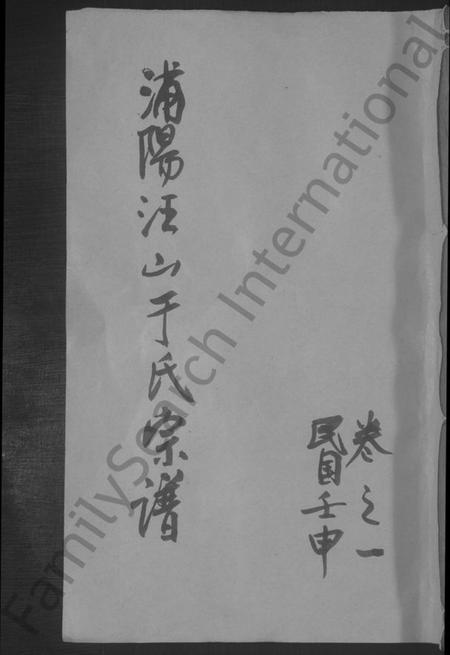 卷之一
民国壬申
浦陽汪山于氏宗谱
FamilySearch International